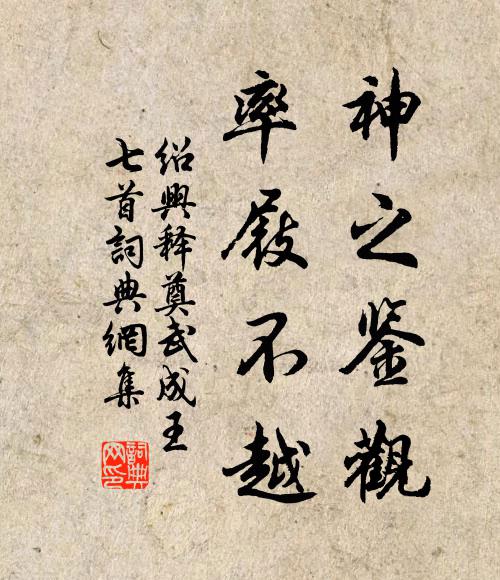 神之鉴觀
率履不越
绍興释奠武成王
七首詞典網集
詞典
网印